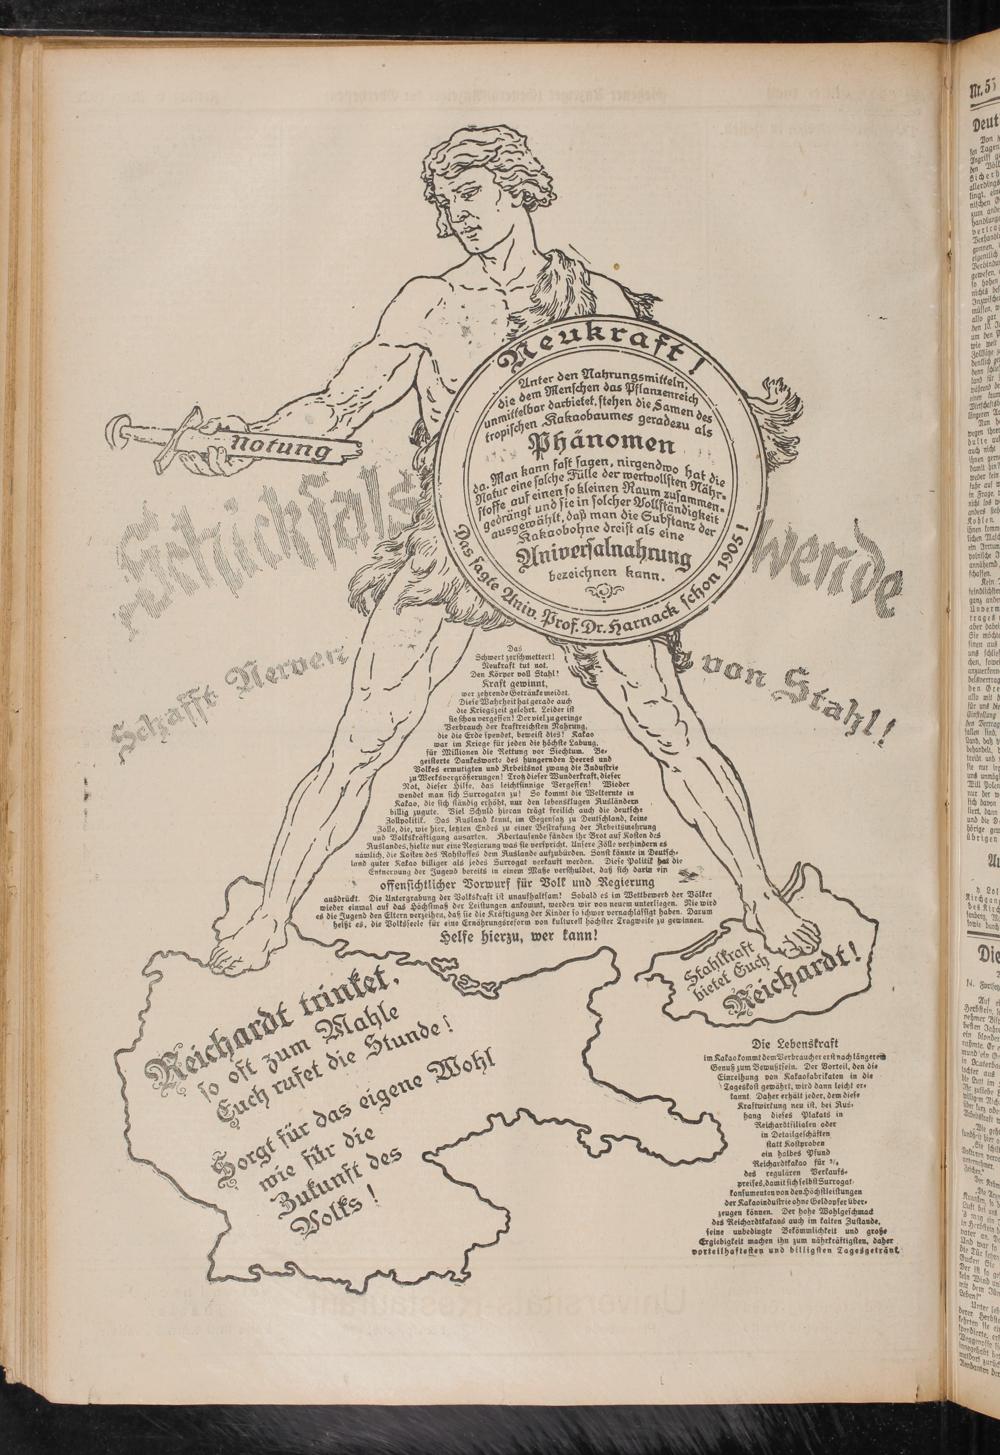 Neukraft!
Unter den Nahrungsmitteln,
die dem Menschen das Pflanzenreich
unmittelbar darbietet, stehen die Samen des
tropischen Kakaobaumes geradezu als
Phänomen
da. Man kann fast sagen, nirgendwo hat die
Natur eine solche Fülle der wertvollsten Nähr-
stoffe auf einen so kleinen Raum zusammen-
gedrängt und sie in solcher Vollständigkeit
ausgewählt, daß man die Substanz der
Kakaobohne dreist als eine
Universalnahrung
bezeichnen kann.
Das sagte Univ. Prof. Dr. Harnack schon 1905!
Notung
Schicksals
wende
Schafft Nerven
von Stahl!
Das
Schwert zerschmettert!
Neukraft tut not.
Den Körper voll Stahl!
Kraft gewinnt,
wer zehrende Getränke meidet.
Diese Wahrheit hat gerade auch
die Kriegszeit gelehrt. Leider ist
sie schon vergessen! Der viel zu geringe
Verbrauch der kraftreichsten Nahrung,
die die Erde spendet, beweist dies! Kakao
war im Kriege für jeden die höchste Labung,
für Millionen die Rettung vor Siechtum. Be-
geisterte Dankesworte des hungernden Heeres und
Volkes ermutigten und Arbeitsnot zwang die Industrie
zu Werksvergrößerungen! Trotz dieser Wunderkraft, dieser
Not, dieser Hilfe, das leichtsinnige Vergessen! Wieder
wendet man sich Surrogaten zu! So kommt die Welternte in
Kakao, die sich ständig erhöht, nur den lebensklugen Ausländern
billig zugute. Viel Schuld hieran trägt freilich auch die deutsche
Zollpolitik. Das Ausland kennt, im Gegensatz zu Deutschland, keine
Zölle, die, wie hier, letzten Endes zu einer Bestrafung der Arbeitsmehrung
und Volkskräftigung ausarten. Abertausende fänden ihr Brot auf Kosten des
Auslandes, hielte nur eine Regierung was sie verspricht. Unsere Zölle verhindern es
nämlich, die Kosten des Rohstoffes dem Auslande aufzubürden. Sonst könnte in Deutsch-
land guter Kakao billiger als jedes Surrogat verkauft werden. Diese Politik hat die
Entnervung der Jugend bereits in einem Maße verschuldet, daß sich darin ein
offensichtlicher Vorwurf für Volk und Regierung
ausdrückt. Die Untergrabung der Volkskraft ist unaufhaltsam! Sobald es im Wettbewerb der Völker
wieder einmal auf das Höchstmaß der Leistungen ankommt, werden wir von neuem unterliegen. Nie wird
es die Jugend den Eltern verzeihen, daß sie die Kräftigung der Kinder so schwer vernachlässigt haben. Darum
heißt es, die Volksseele für eine Ernährungsreform von kulturell höchster Tragweite zu gewinnen.
Helfe hierzu, wer kann!
Stahlkraft
bietet Euch
Reichardt!
Reichardt trinket,
so oft zum Mahle
Euch rufet die Stunde!
Sorgt für das eigene Wohl
wie für die
Zukunft des
Volks!
Die Lebenskraft
im Kakao kommt dem Verbraucher erst nach längerem
Genuß zum Bewußtsein. Der Vorteil, den die
Einreihung von Kakaofabrikaten in die
Tageskost gewährt, wird dann leicht er-
kannt. Daher erhält jeder, dem diese
Kraftwirkung neu ist, bei Aus-
hang dieses Plakats in
Reichardtfilialen oder
in Detailgeschäften
statt Kostproben
ein halbes Pfund
Reichardtkakao für
des regulären Verkaufs-
preises, damit sich selbst Surrogat-
konsumenten von den Höchstleistungen
der Kakaoindustrie ohne Geldopfer über-
zeugen können. Der hohe Wohlgeschmack
des Reichardtkakaos auch im kalten Zustande,
seine unbedingte Bekömmlichkeit und große
Ergiebigkeit machen ihn zum nährkräftigsten, daher
vorteilhaftesten und billigsten Tagesgetränk.
Nr. 55
Deut